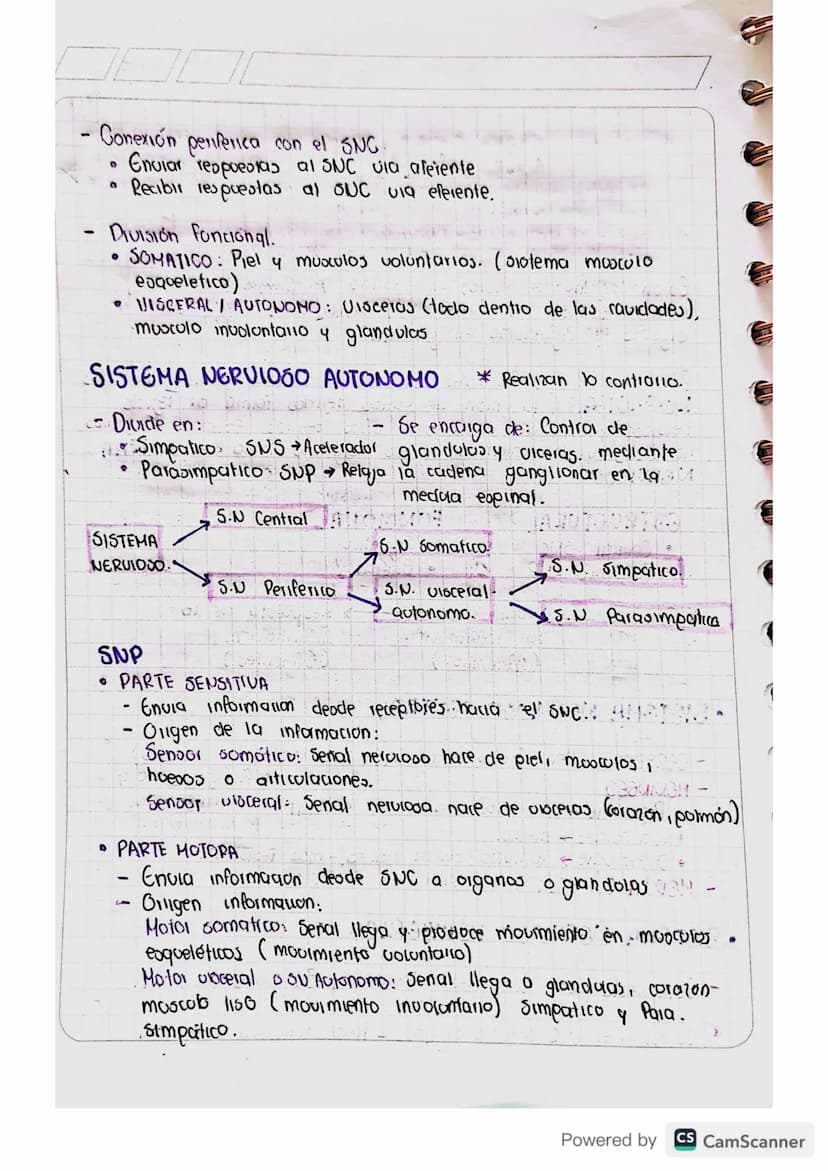 - Conexión periferica con el SNC.
• Enviar respuestas al SNC via aferente
• Recibir respuestas al SNC via eferente.
- División Funcional.
• SOMATICO: Piel y musculos voluntarios. (sistema musculo
esqueletico)
• VISCERAL / AUTONOMO: Visceras (todo dentro de las cavidades),
musculo involontario y glandulas
SISTEMA NERVIOSO AUTONOMO * Realizan lo contrario.
- Divide en: - Se encarga de: Control de
• Simpatico: SNS → Acelerador glandulas y viceras. mediante
• Parasimpatico: SNP → Relaja la cadena ganglionar en la
medula espinal.
S.N Central
SISTEMA S.N Somatico.
NERVIOSO. S.N. Simpatico.
S.N Periferico S.N. visceral
autonomo. S.N Parasimpatica
SNP
• PARTE SENSITIVA
- Envia informacion desde receptores hacia el SNC.
- Origen de la informacion:
Sensor somático: Señal nervioso nace de piel, musculos,
huesos o articulaciones.
Sensor visceral: Señal nerviosa nace de visceras (corazón, pulmón)
• PARTE MOTORA
- Envia informacion desde SNC a organos o glandulas
- Origen informacion:
Motor somatico: Señal llega y produce movimiento en musculos
esqueléticos (movimiento voluntario)
Motor visceral o SN Autonomo: Señal llega a glandulas, corazon
musculo liso (movimiento involuntario) Simpatico y Para.
Simpático.
Powered by CS CamScanner